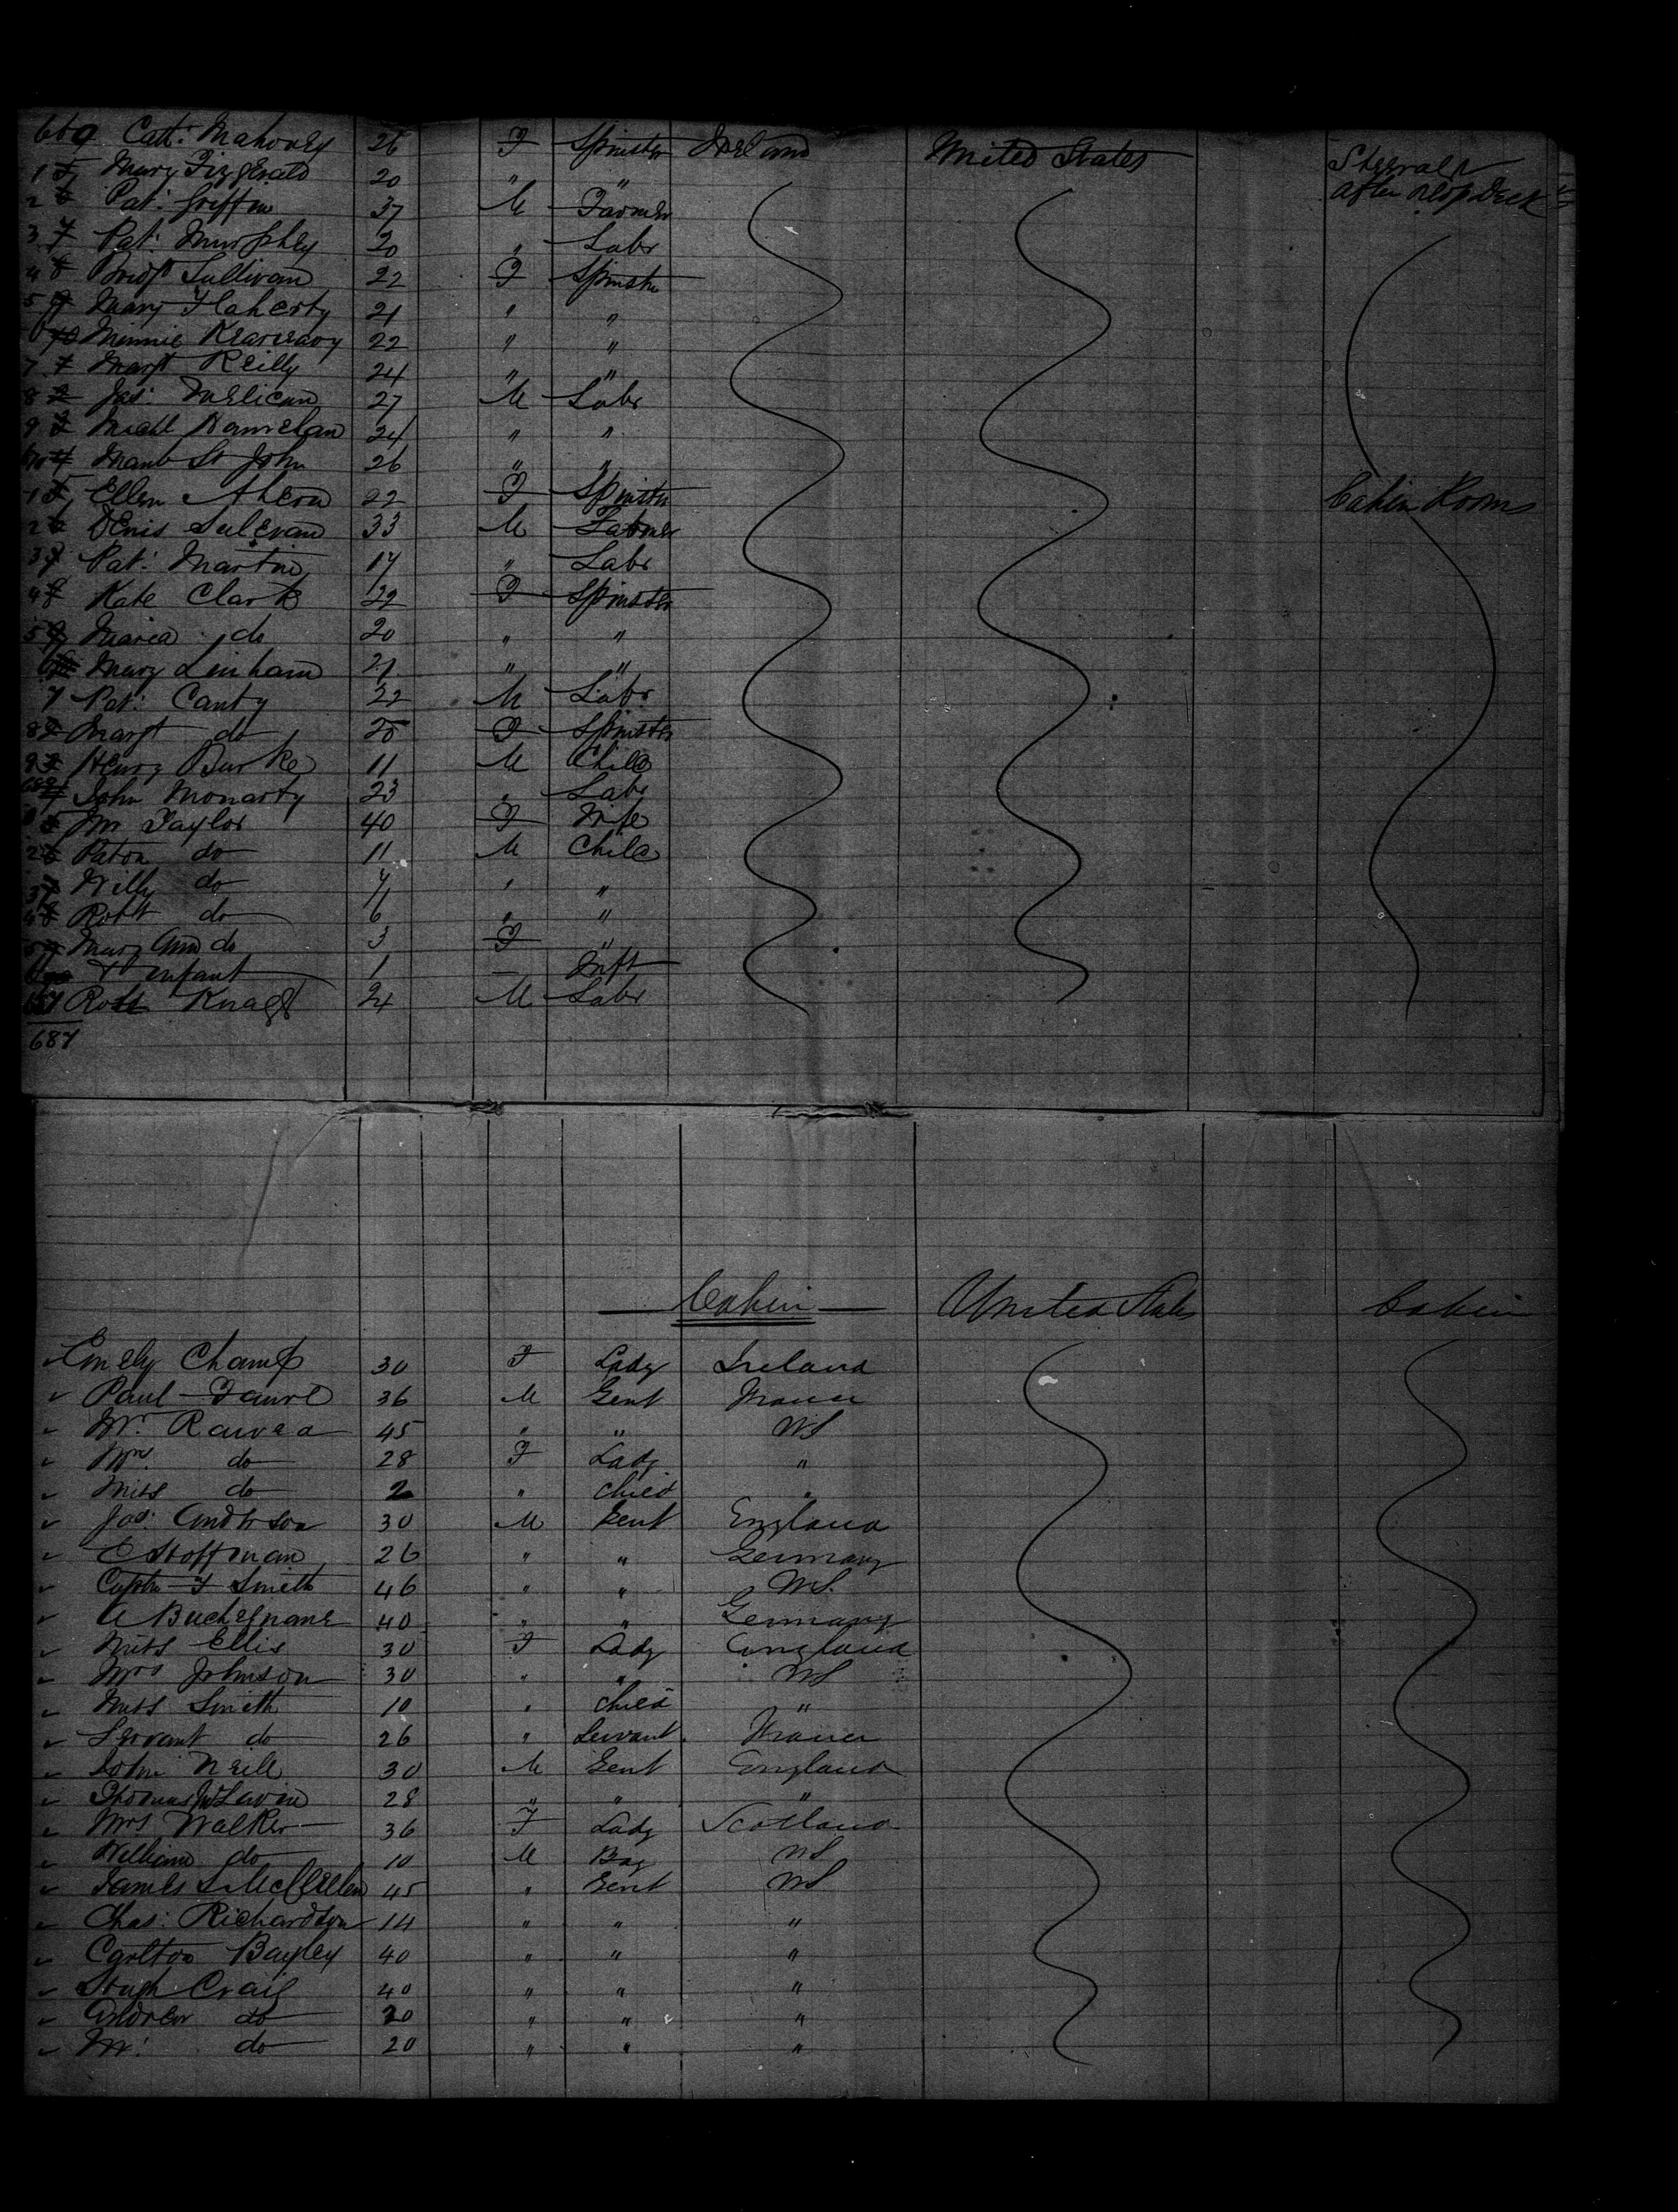 660 Cath: Mahoney 26 F Spinster Ireland United States Steerage
1 Mary Fizgerald 20 " " after Deck
2 Pat: Griffin 37 M Farmer
3 Pat: Murphey 20 " Labr
4 Bridgt Sullivan 22 F Spinster
5 Mary Flaherty 21 " "
6 Minnie 22 " "
7 Margt Reilly 24 " "
8 Jas: Melican 27 M Labr
9 Michl 24 " "
670 St John 26 " "
1 Ellen Ahern 22 F Spinster Cabin Rooms
2 Denis Sulevan 33 M Farmer
3 Pat: Martin 17 " Labr
4 Kate Clark 22 F Spinster
5 Maria do 20 " "
6 Mary Linham 21 " "
7 Pat: Canty 22 M Labr
8 Margt do 25 F Spinster
9 Henry Burke 11 M Child
680 John Monarty 23 " Labr
1 Mrs Taylor 40 F Wife
2 Paton do 11 M Child
3 Willy do 7 " "
4 Robt do 6 " "
5 Mary Ann do 3 F "
6 & infant 1 — Inft
687 Robt 24 M Labr
687
Cabin United States Cabin
Emely Champ 30 F Lady Ireland
Paul Faure 36 M Gent France
Mr. 45 " " US
Mrs do 28 F Lady "
Miss do 2 " Child "
Jas: Anderson 30 M Gent England
E Hoffman 26 " " Germany
Captn F Smith 46 " " US.
A 40 " " Germany
Miss Ellis 30 F Lady England
Mrs Johnson 30 " " US
Miss Smith 10 " Child "
Servant do 26 " Servant France
John Neill 30 M Gent England
Thomas 28 " " "
Mrs Walker 36 F Lady Scotland
William do 10 M Boy US
James 45 " Gent US
Chas: Richardson 14 " " "
Carlton Bayley 40 " " "
Hugh Craig 40 " " "
Andrew do 20 " " "
M: do 20 " " "